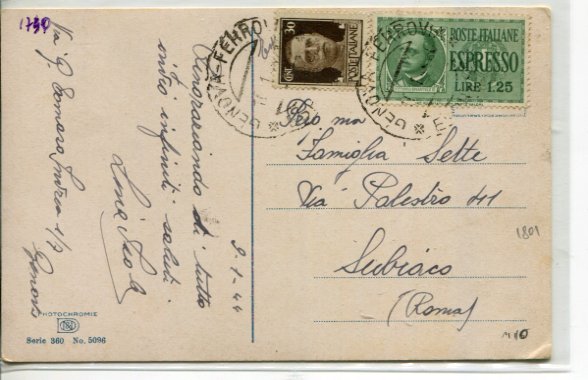 1739
Via G. Tomaso Invrea 1/3
Genova
Ringraziando di tutto
invio infiniti saluti
9-1-44
PHOTOCHROMIE
Serie 360 No. 5096
GENOVA-FERROVIA
30
CENT.
POSTE ITALIANE
POSTE ITALIANE
ESPRESSO
LIRE 1.25
GENOVA-FERROVIA
Famiglia Sette
Via Palestro 41
Subiaco
(Roma)
1801